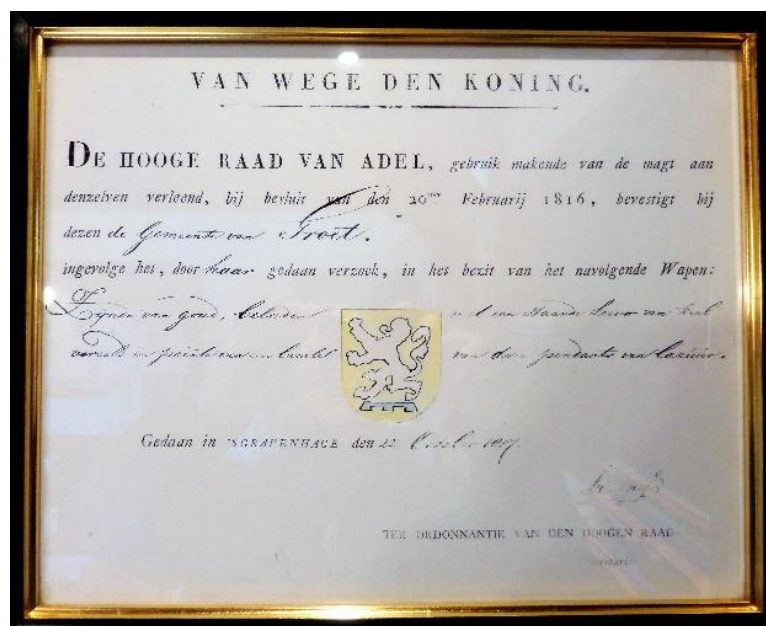 VAN WEGE DEN KONING.
DE HOOGE RAAD VAN ADEL, gebruik makende van de magt aan
denzelven verleend, bij besluit van den 20sten Februarij 1816, bevestigt bij
dezen de Gemeente van Troet.
ingevolge het, door haar gedaan verzoek, in het bezit van het navolgende Wapen:
Zijnde van goud, beladen met een staande Leeuw van keel
verzeld en pointe van een lambel van drie pendants van lazuur.
Gedaan in 'SGRAVENHAGE den 22 October
TER ORDONNANTIE VAN DEN HOOGEN RAAD